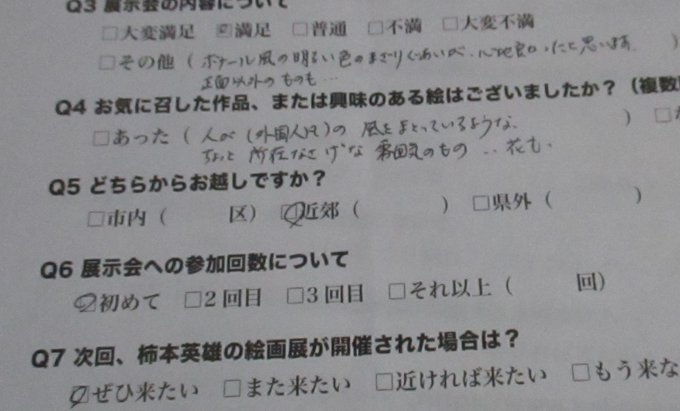 Q3 展示会の内容について
□大変満足 ☑満足 □普通 □不満 □大変不満
□その他（ボナール風の明るい色のまざりぐあいが、心地良かったと思います。）
正面以外のものも…
Q4 お気に召した作品、または興味のある絵はございましたか？（複数
□あった（人が（外国人風）の 風をまとっているような、）□
ちょっと 所在なさげな 雰囲気のもの … 花も、
Q5 どちらからお越しですか？
□市内（ 区） ☑近郊（ ） □県外（ ）
Q6 展示会への参加回数について
☑初めて □2回目 □3回目 □それ以上（ 回）
Q7 次回、柿本英雄の絵画展が開催された場合は？
☑ぜひ来たい □また来たい □近ければ来たい □もう来な